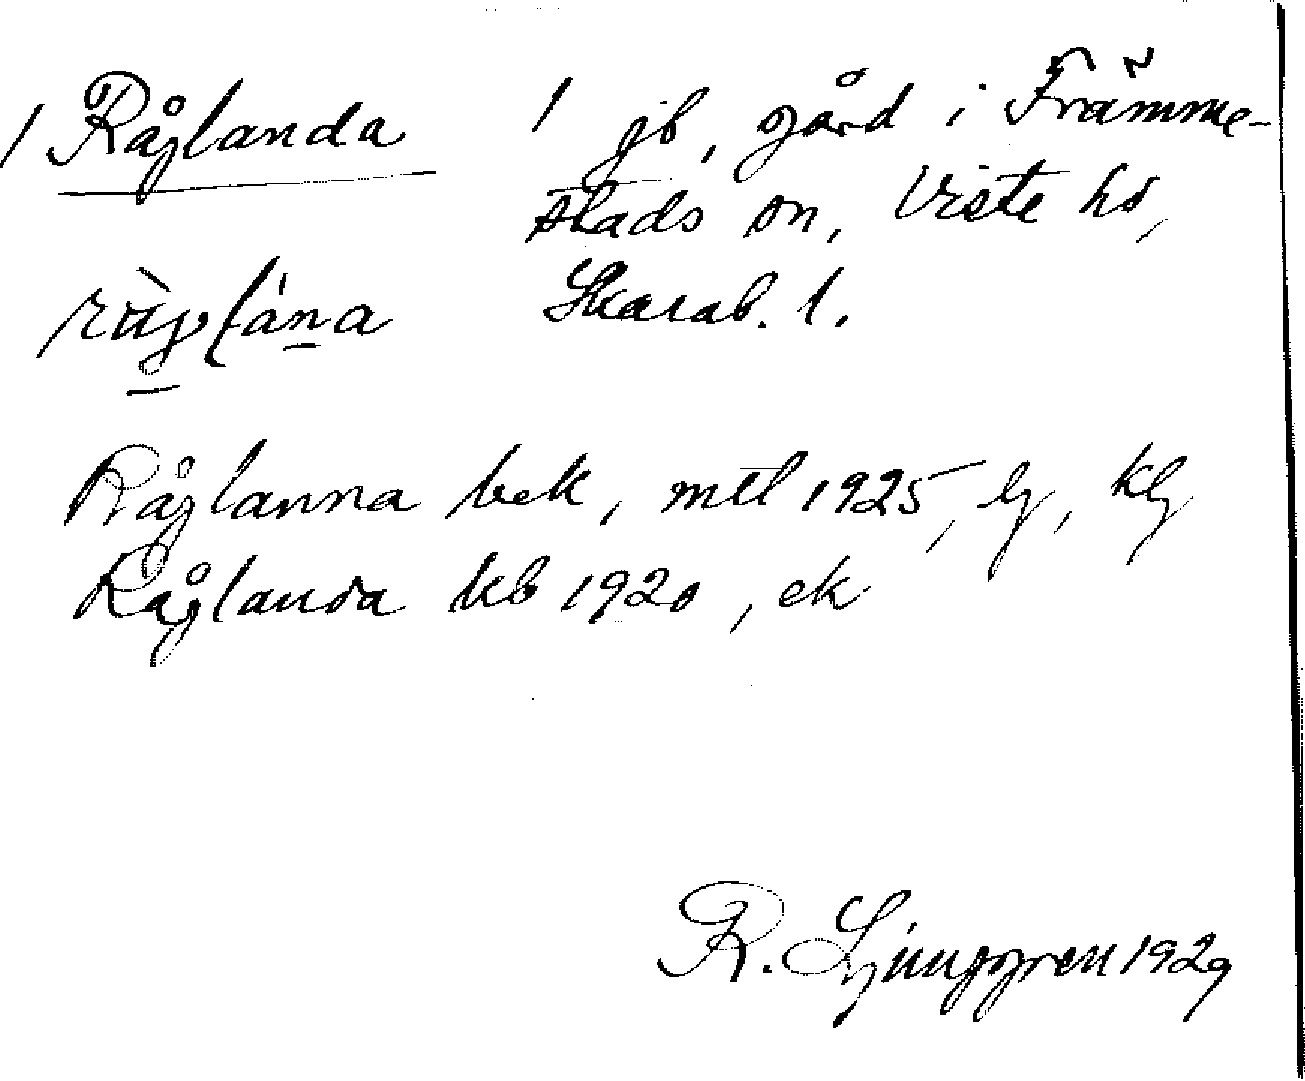 / Råglanda / jb, gård i Främme-
stads sn, Viste hd,
Skarab. l.
Råglanna bek, mtl 1925, lg, kg
Råglanda kb 1920, ek
R. Ljunggren 1929